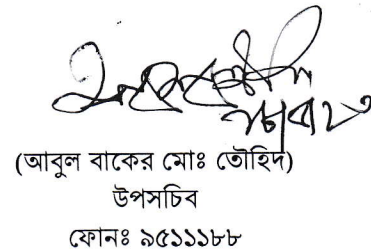 (আবুল বাকের মোঃ তৌহিদ)
উপসচিব
ফোনঃ ৯৫১১১৮৮